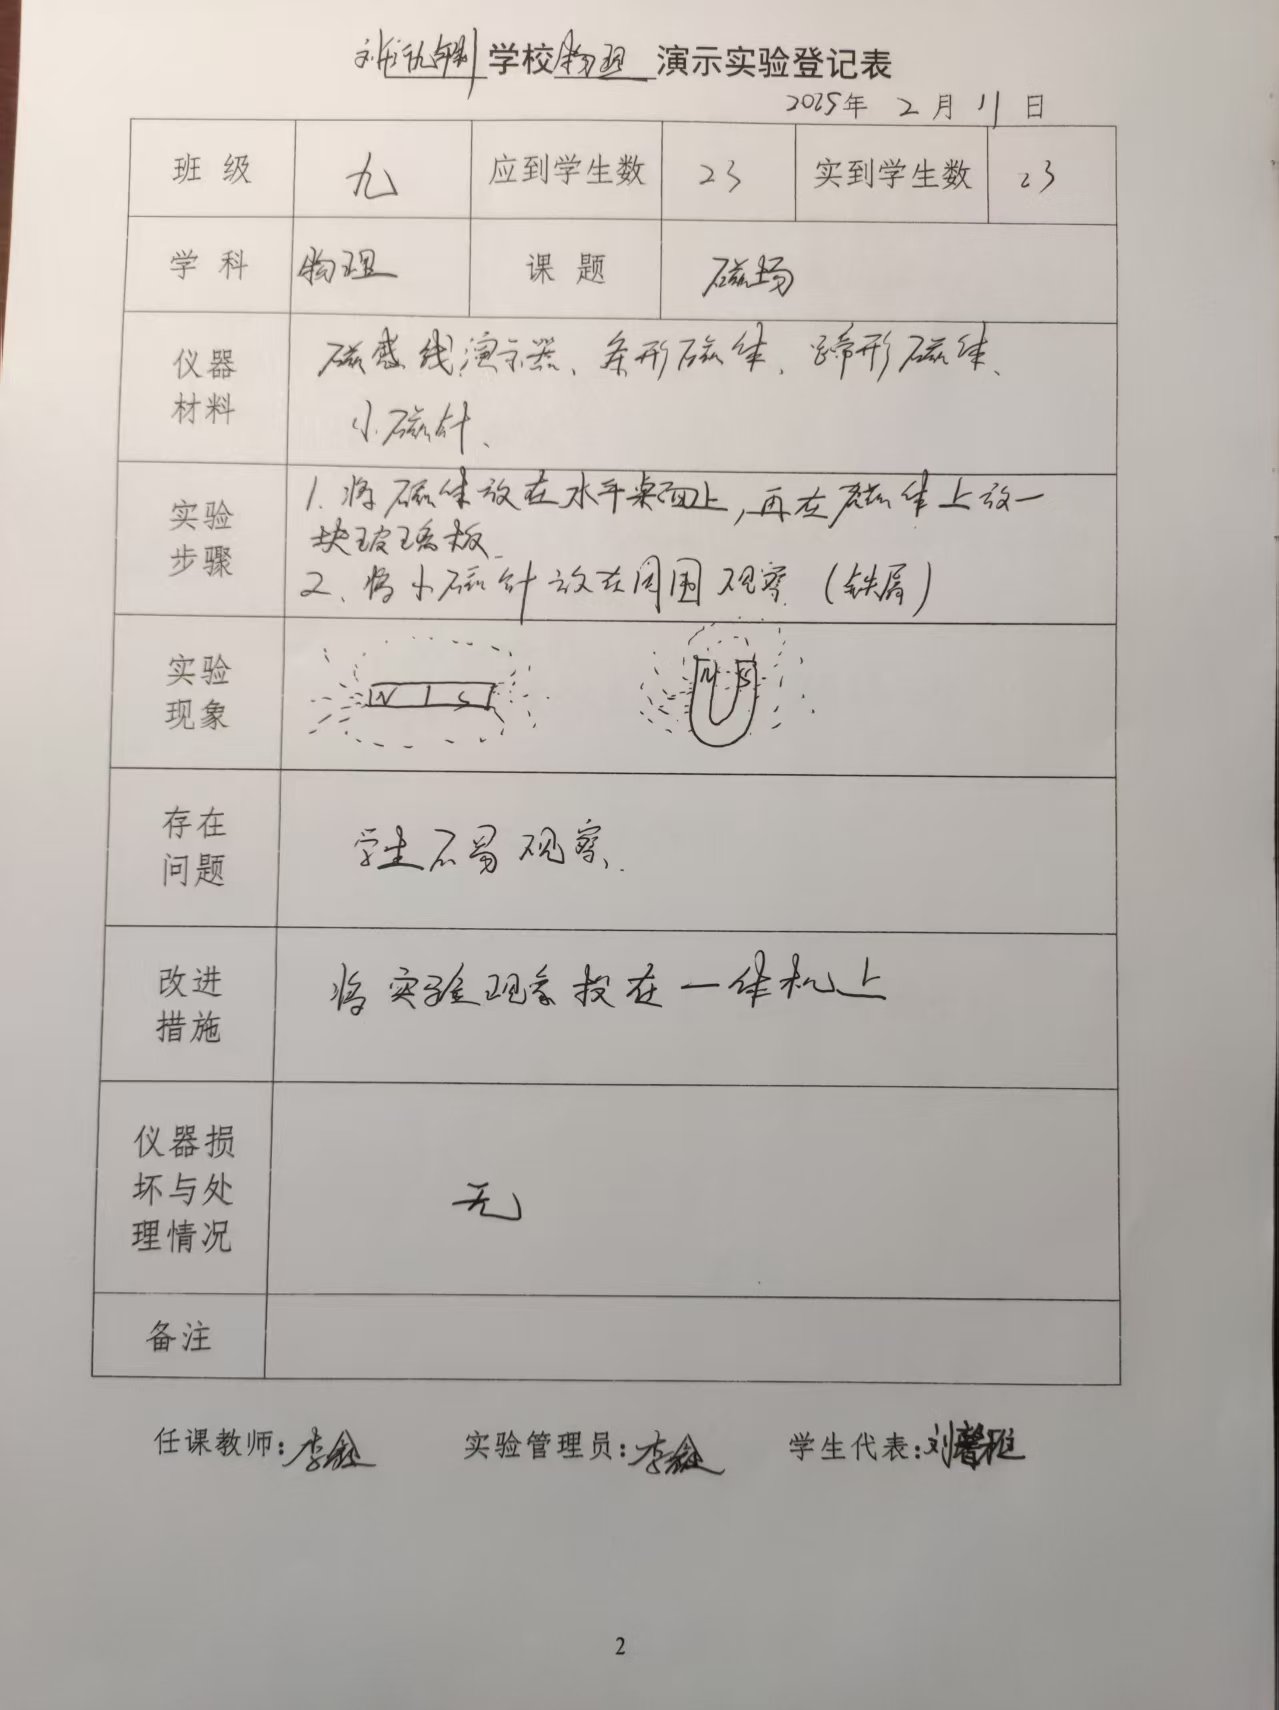 学校 物理 演示实验登记表
2025年 2月 11日
班级 九 应到学生数 23 实到学生数 23
学科 物理 课题 磁场
仪器
材料
磁感线演示器、条形磁体、蹄形磁体、
小磁针、
实验
步骤
1. 将磁体放在水平桌面上,再在磁体上放一
块玻璃板
2、将小磁针放在周围观察(铁屑)
实验
现象
N S
N S
存在
问题
学生不易观察、
改进
措施
将实验现象投在一体机上
仪器损
坏与处
理情况
无
备注
任课教师:李鑫 实验管理员:李鑫 学生代表:刘馨
2